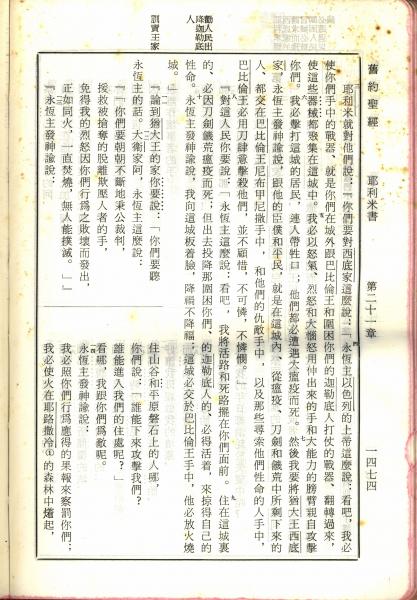 舊約聖經　耶利米書　第二十一章　一四七四
耶利米就對他們說：『你們要對西底家這麼說：「永恆主以色列的上帝這麼說：看吧，我必
使你們手中的戰器、就是你們在城外跟巴比倫王和圍困你們的迦勒底人打仗的戰器、翻轉過來，
使這些器械都聚集在這城中。我必以怒氣、烈怒和大惱怒用伸出來的手和大能力的膀臂親自攻擊
你們。我必擊打這城的居民，連人帶牲口；他們都必遭遇大瘟疫而死。然後我要將猶大王西底
家，永恆主發神諭說，跟他的臣僕和平民，就是在這城內、從瘟疫、刀劍和饑荒中所剩下來的
人、都交在巴比倫王尼布甲尼撒手中，和他們的仇敵手中，以及那些尋索他們性命的人手中，
巴比倫王必用刀肆意擊殺他們，並不顧惜，不可憐，不憐憫。」
勸人民出降迦勒底人
『對這人民你要說：「永恆主這麼說：看吧，我將活路和死路擺在你們面前。住在這城裏
的、必因刀劍饑荒瘟疫而死；但出去投降那圍困你們、的迦勒底人的、必得活着，來掠得自己的
性命。永恆主發神諭說，我向這城板着臉，降禍不降福；這城必交於巴比倫王手中，他必放火燒
城。」
訓責王家
『論到猶大王的家你要說：「你們要聽
永恆主的話。大衛家阿，永恆主這麼說：
『「你們要朝朝不斷地秉公裁判，
拯救被搶奪的脫離欺壓人者的手，
免得我的烈怒因你們行爲之敗壞而發出，
正如同火，一直焚燒，無人能撲滅。」』
『永恆主發神諭說：
住山谷和平原磐石上的人哪，
你們說：「誰能下來攻擊我們？
誰能進入我們的住處呢？」
看哪，我跟你們爲敵呢。
永恆主發神諭說：
我必照你們行爲應得的果報來察罰你們；
我必使火在耶路撒冷①的森林中燃起，